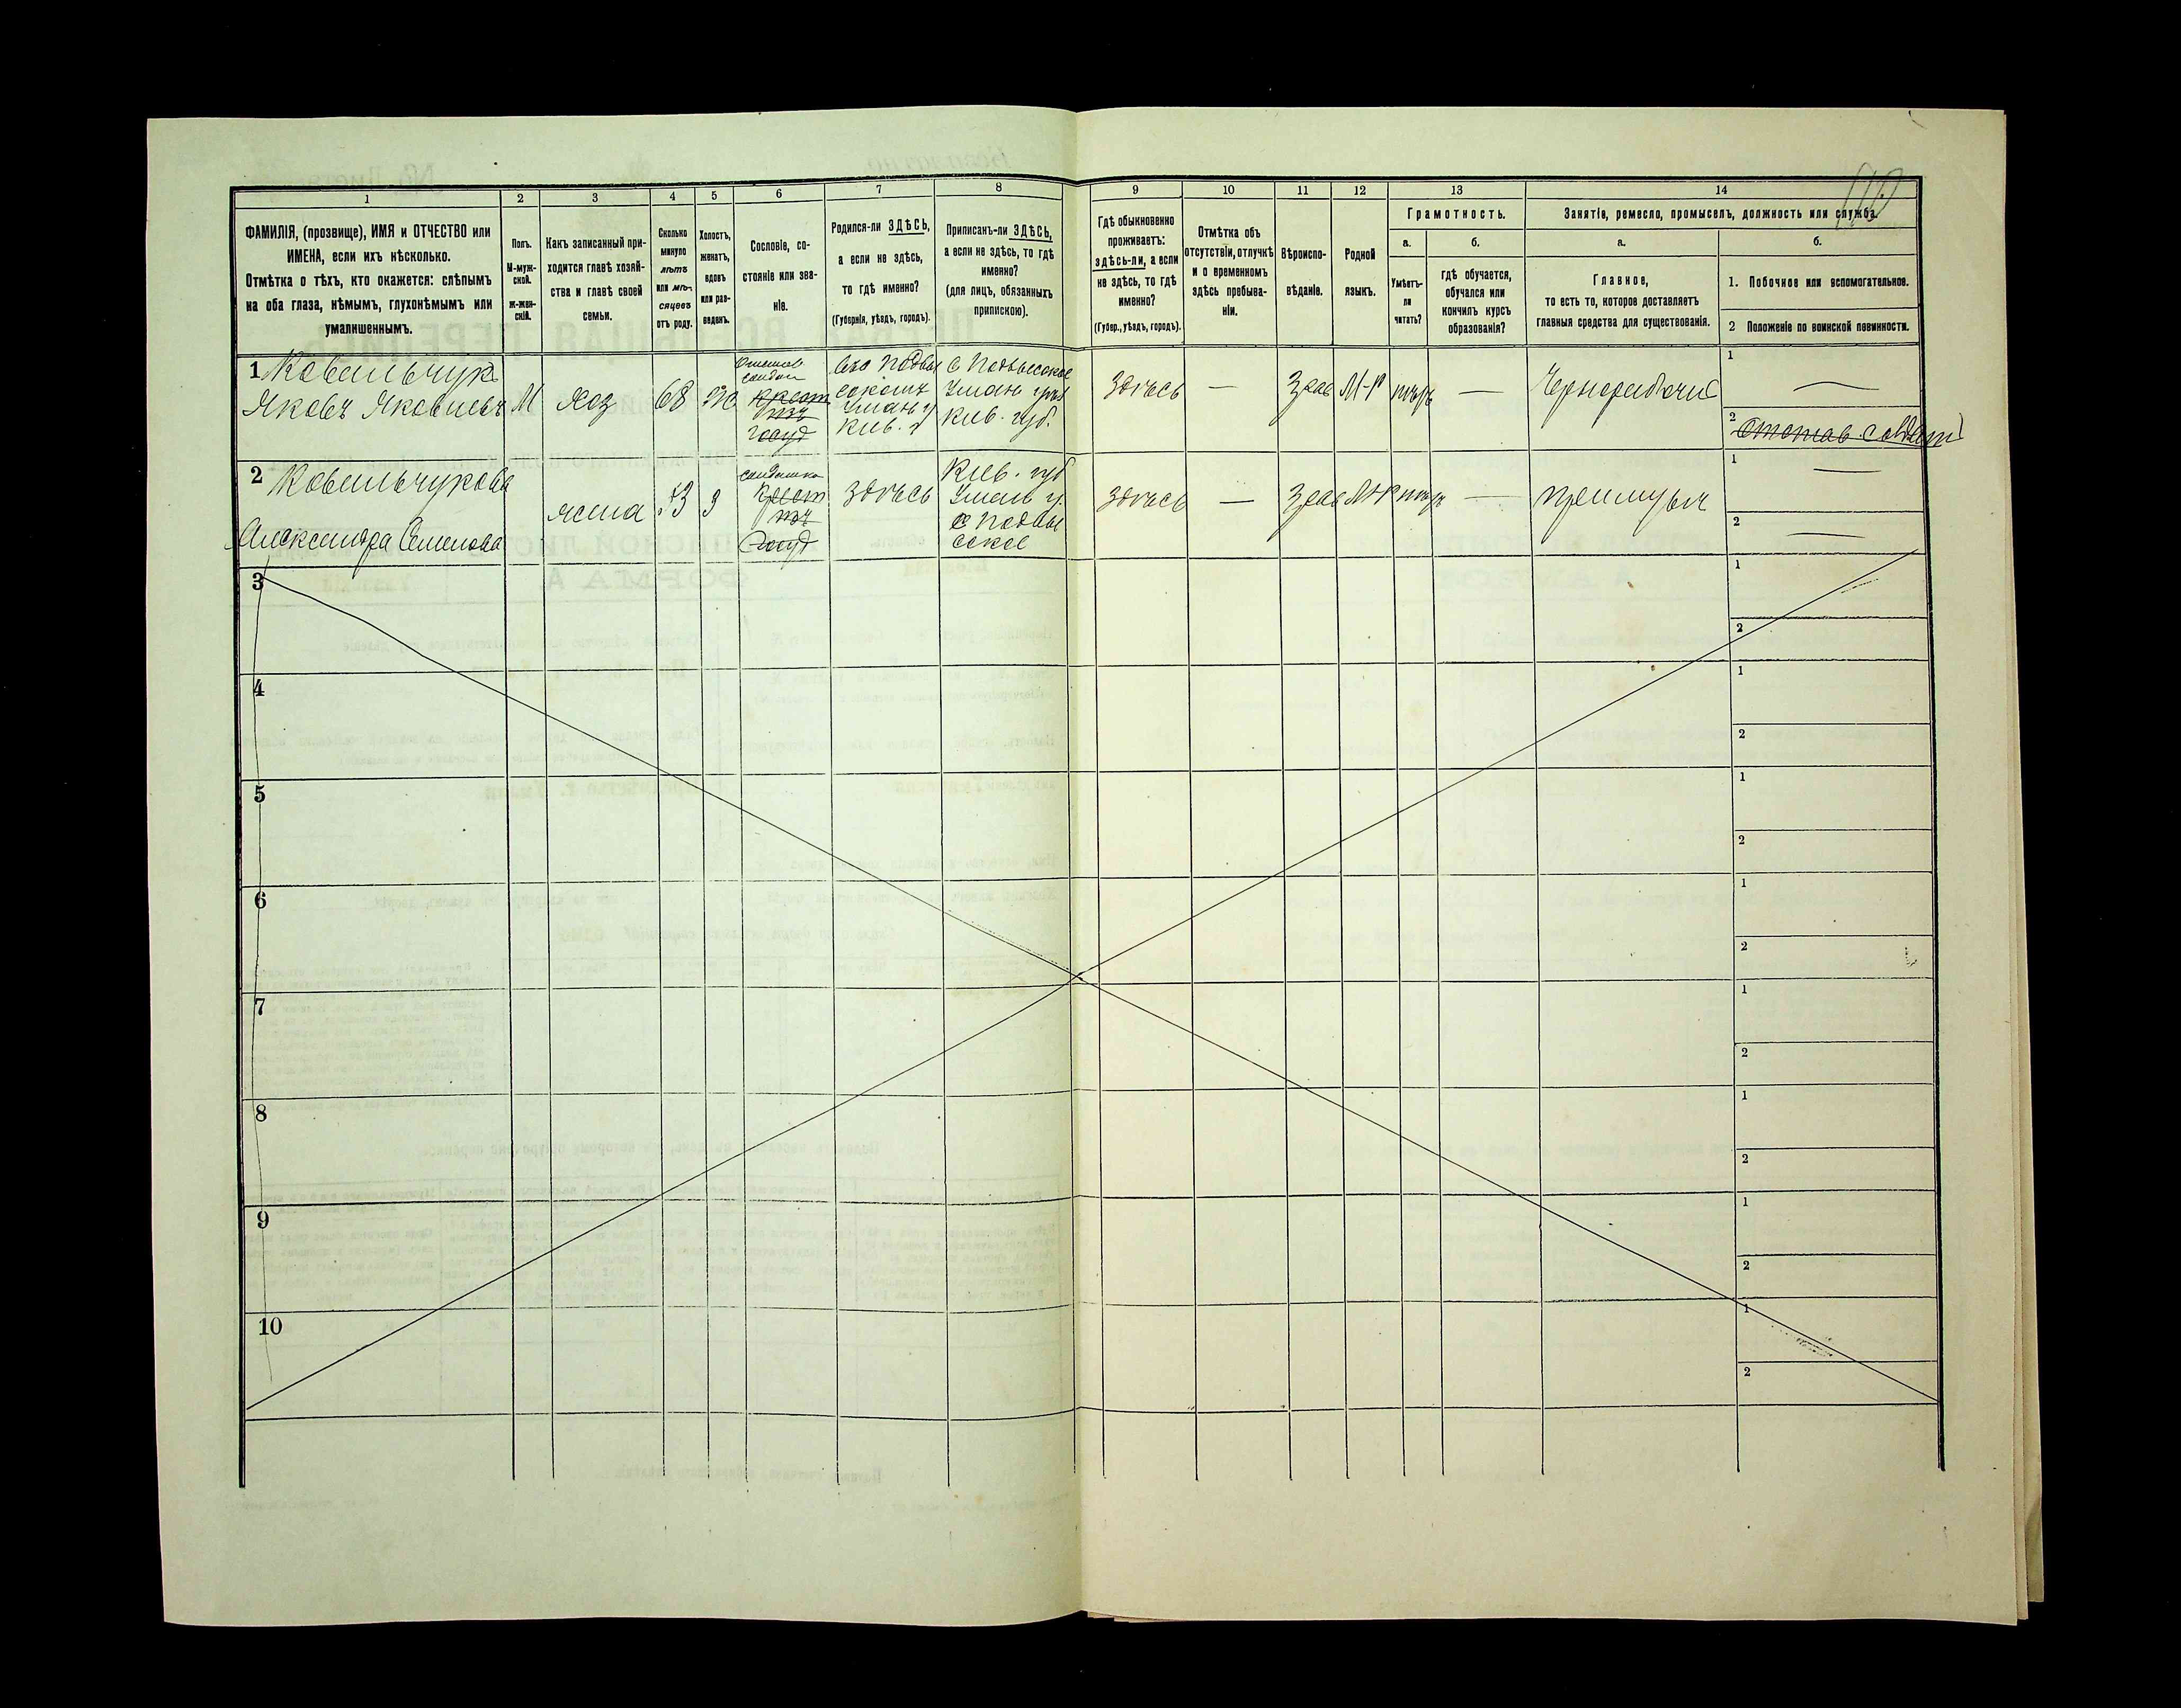 1
2
3
4
5
6
7
8
9
10
11
12
13
14
ФАМИЛІЯ, (прозвище), ИМЯ и ОТЧЕСТВО или
ИМЕНА, если ихъ нѣсколько.
Отмѣтка о тѣхъ, кто окажется: слѣпымъ
на оба глаза, нѣмымъ, глухонѣмымъ или
умалишеннымъ.
Полъ.
М-муж-
ской.
ж-жен-
скій.
Какъ записанный при-
ходится главѣ хозяй-
ства и главѣ своей
семьи.
Сколько
минуло
лѣтъ
или мѣ-
сяцевъ
отъ роду.
Холостъ,
женатъ,
вдовъ
или раз-
веденъ.
Сословіе, со-
стояніе или зва-
ніе.
Родился-ли ЗДѢСЬ,
а если не здѣсь,
то гдѣ именно?
(Губернія, уѣздъ, городъ).
Приписанъ-ли ЗДѢСЬ,
а если не здѣсь, то гдѣ
именно?
(для лицъ, обязанныхъ
припискою).
Гдѣ обыкновенно
проживаетъ:
здѣсь-ли, а если
не здѣсь, то гдѣ
именно?
(Губер., уѣздъ, городъ).
Отмѣтка объ
отсутствіи, отлучкѣ
и о временномъ
здѣсь пребыва-
ніи.
Вѣроиспо-
вѣданіе.
Родной
языкъ.
Грамотность.
а.
Умѣетъ-
ли
читать?
б.
гдѣ обучается,
обучался или
кончилъ курсъ
образованія?
Занятіе, ремесло, промыселъ, должность или служба.
а.
Главное,
то есть то, которое доставляетъ
главныя средства для существованія.
б.
1. Побочное или вспомогательное.
2 Положеніе по воинской повинности.
1 Ковальчук
Яковъ Яковлевъ
М
хоз
68
ж
крест
изъ
госуд
Подвы
сокомъ
Уман у
Кив. г
с Подвысокое
Уман уѣзд
Кив. губ.
здѣсь
—
нѣтъ
—
Чернорабочій
1
2 Отстав. солдат
2 Ковальчукова
Александра Семенова
жена
53
з
солдатка
крест
изъ
госуд
здѣсь
Кив. губ
Уман у.
с Подвы
сокое
здѣсь
—
нѣтъ
—
при мужѣ
1 —
2 —
3
1
2
4
1
2
5
1
2
6
1
2
7
1
2
8
1
2
9
1
2
10
1
2